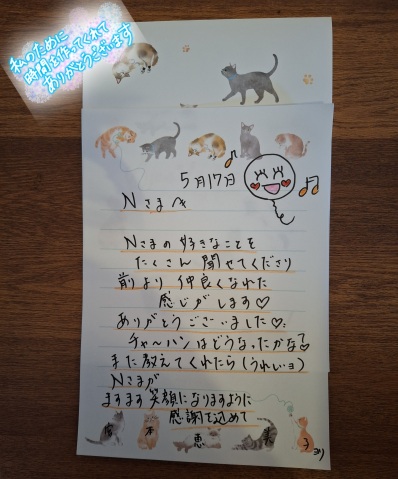 私のために
時間を作ってくれて
ありがとうございます
5月17日
Nさまへ
Nさまの好きなことを
たくさん聞せてくださり
前より仲良くなれた
感じがします♡
ありがとうございました♡
チャーハンはどうなったかなて
また教えてくれたら(うれいョ)
Nさまが
ますます笑顔になりますように
感謝を込めて
宮本恵美子より